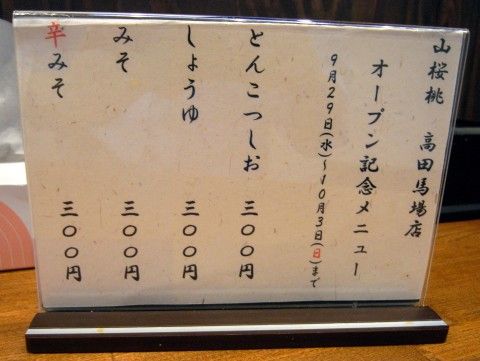 山桜桃 高田馬場店
オープン記念メニュー
9月29日(水)～10月3日(日)まで
とんこつしお 三〇〇円
しょうゆ 三〇〇円
みそ 三〇〇円
辛みそ 三〇〇円